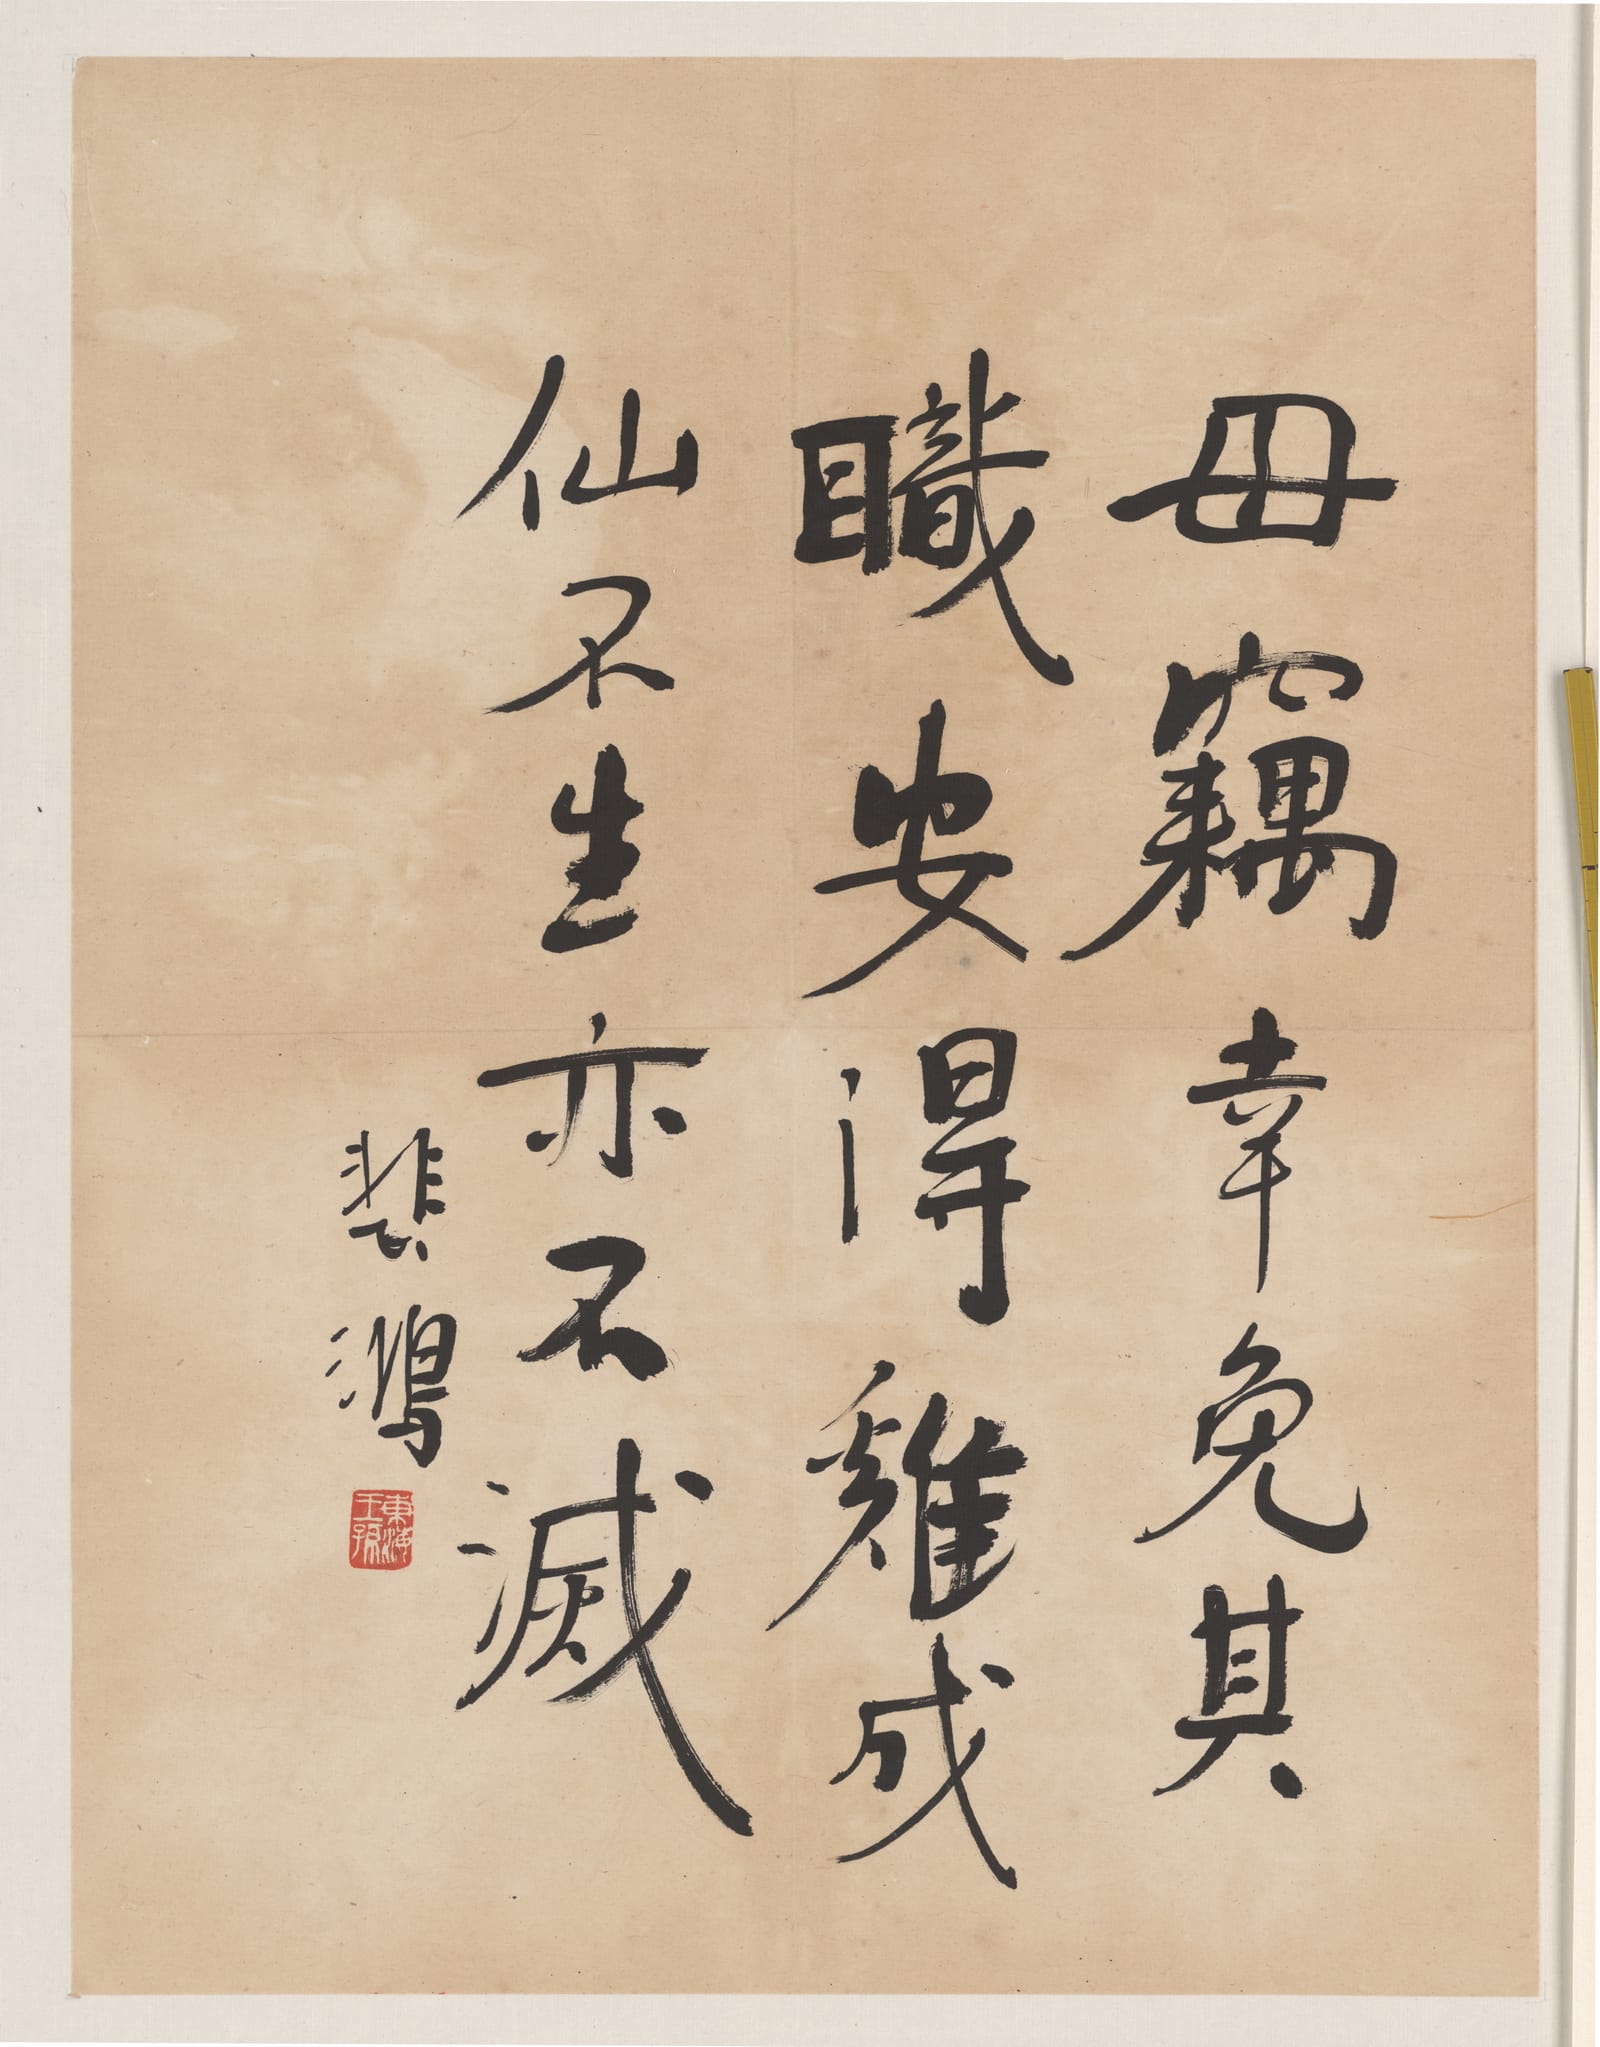 毋竊幸免其
職安得雞成
仙不生亦不滅
悲鴻
東海
王孫